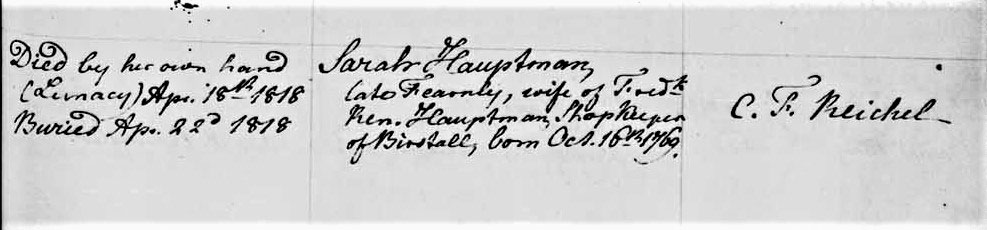 Died by her own hand
(Lunacy) Apr. 18th 1818
Buried Ap. 22d 1818
Sarah Hauptman,
late Fearnly, wife of Fredk
Ren. Hauptman, Shopkeeper
of Birstall, born Oct. 16th 1769.
C. F. Reichel